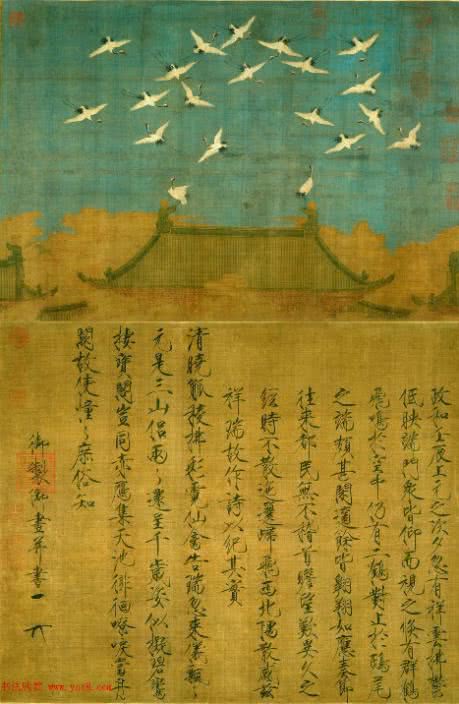 政和壬辰上元之次夕忽有祥雲拂鬱
低映端門衆皆仰而視之倏有群鶴
飛鳴於空中仍有二鶴對止於鴟尾
之端頗甚閑適餘皆翱翔如應奏節
往來都民無不稽首瞻望歎異久之
經時不散迤邐歸飛西北隅散感茲
祥瑞故作詩以紀其實
清曉觚稜拂彩霓仙禽告瑞忽來儀飄々
元是三山侶兩々還呈千歲姿似擬碧鸞
棲寶閣豈同赤鴈集天池徘徊嘹唳當丹
闕故使憧々庶俗知
御製御畫并書
书法欣赏 www.yac8.com